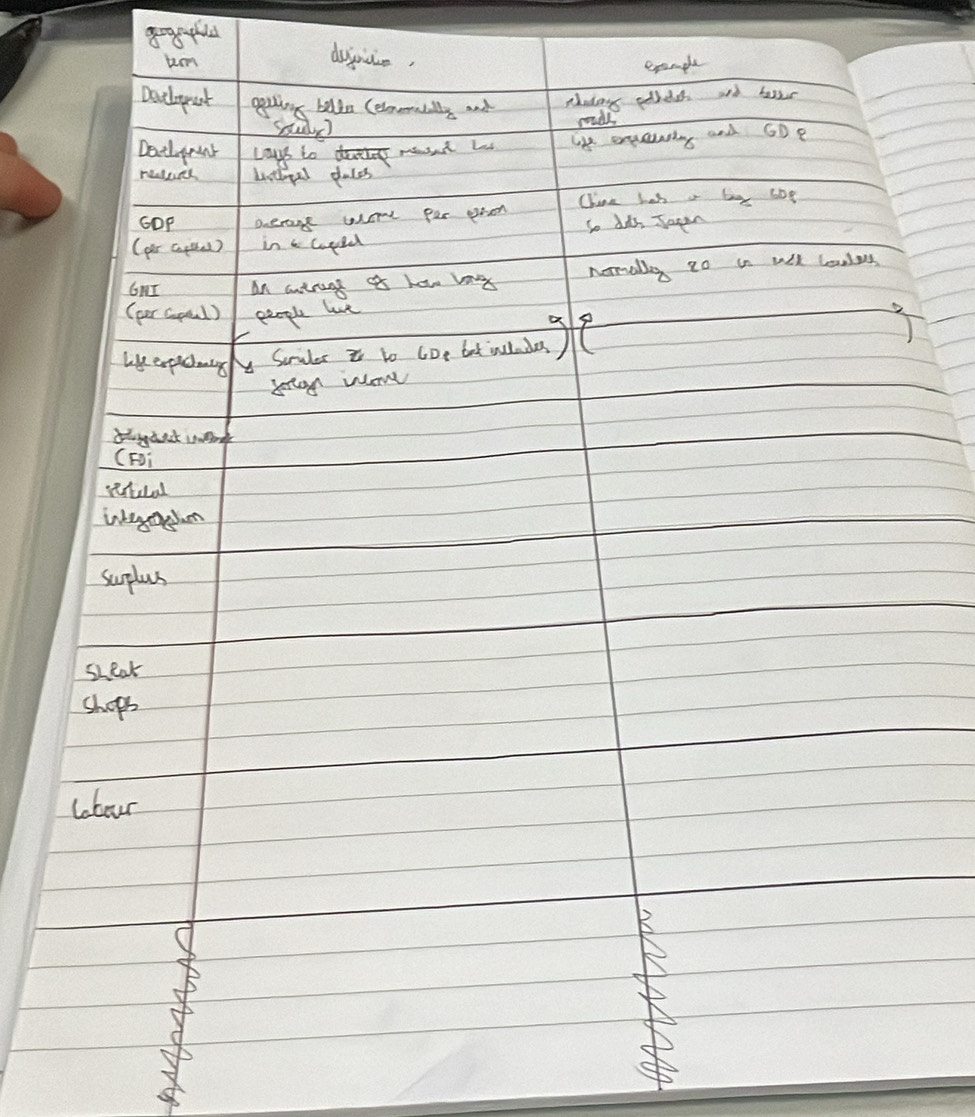 geographical
term
definition
example
Development
getting better (economically and
socially)
reducing and better
roads
Development
ways to develop measure how
developed places
life expectancy and GDP
GDP
(per capital)
average income per person
in a capital
China has a big GDP
so does Japan
GNI
(per capital)
An average of how long
people live
normally 80 in countrys
life expectancy
Similar to GDP but includes
foreign income
(FDi
vertical
surplus
Sweat
Shops
Labour